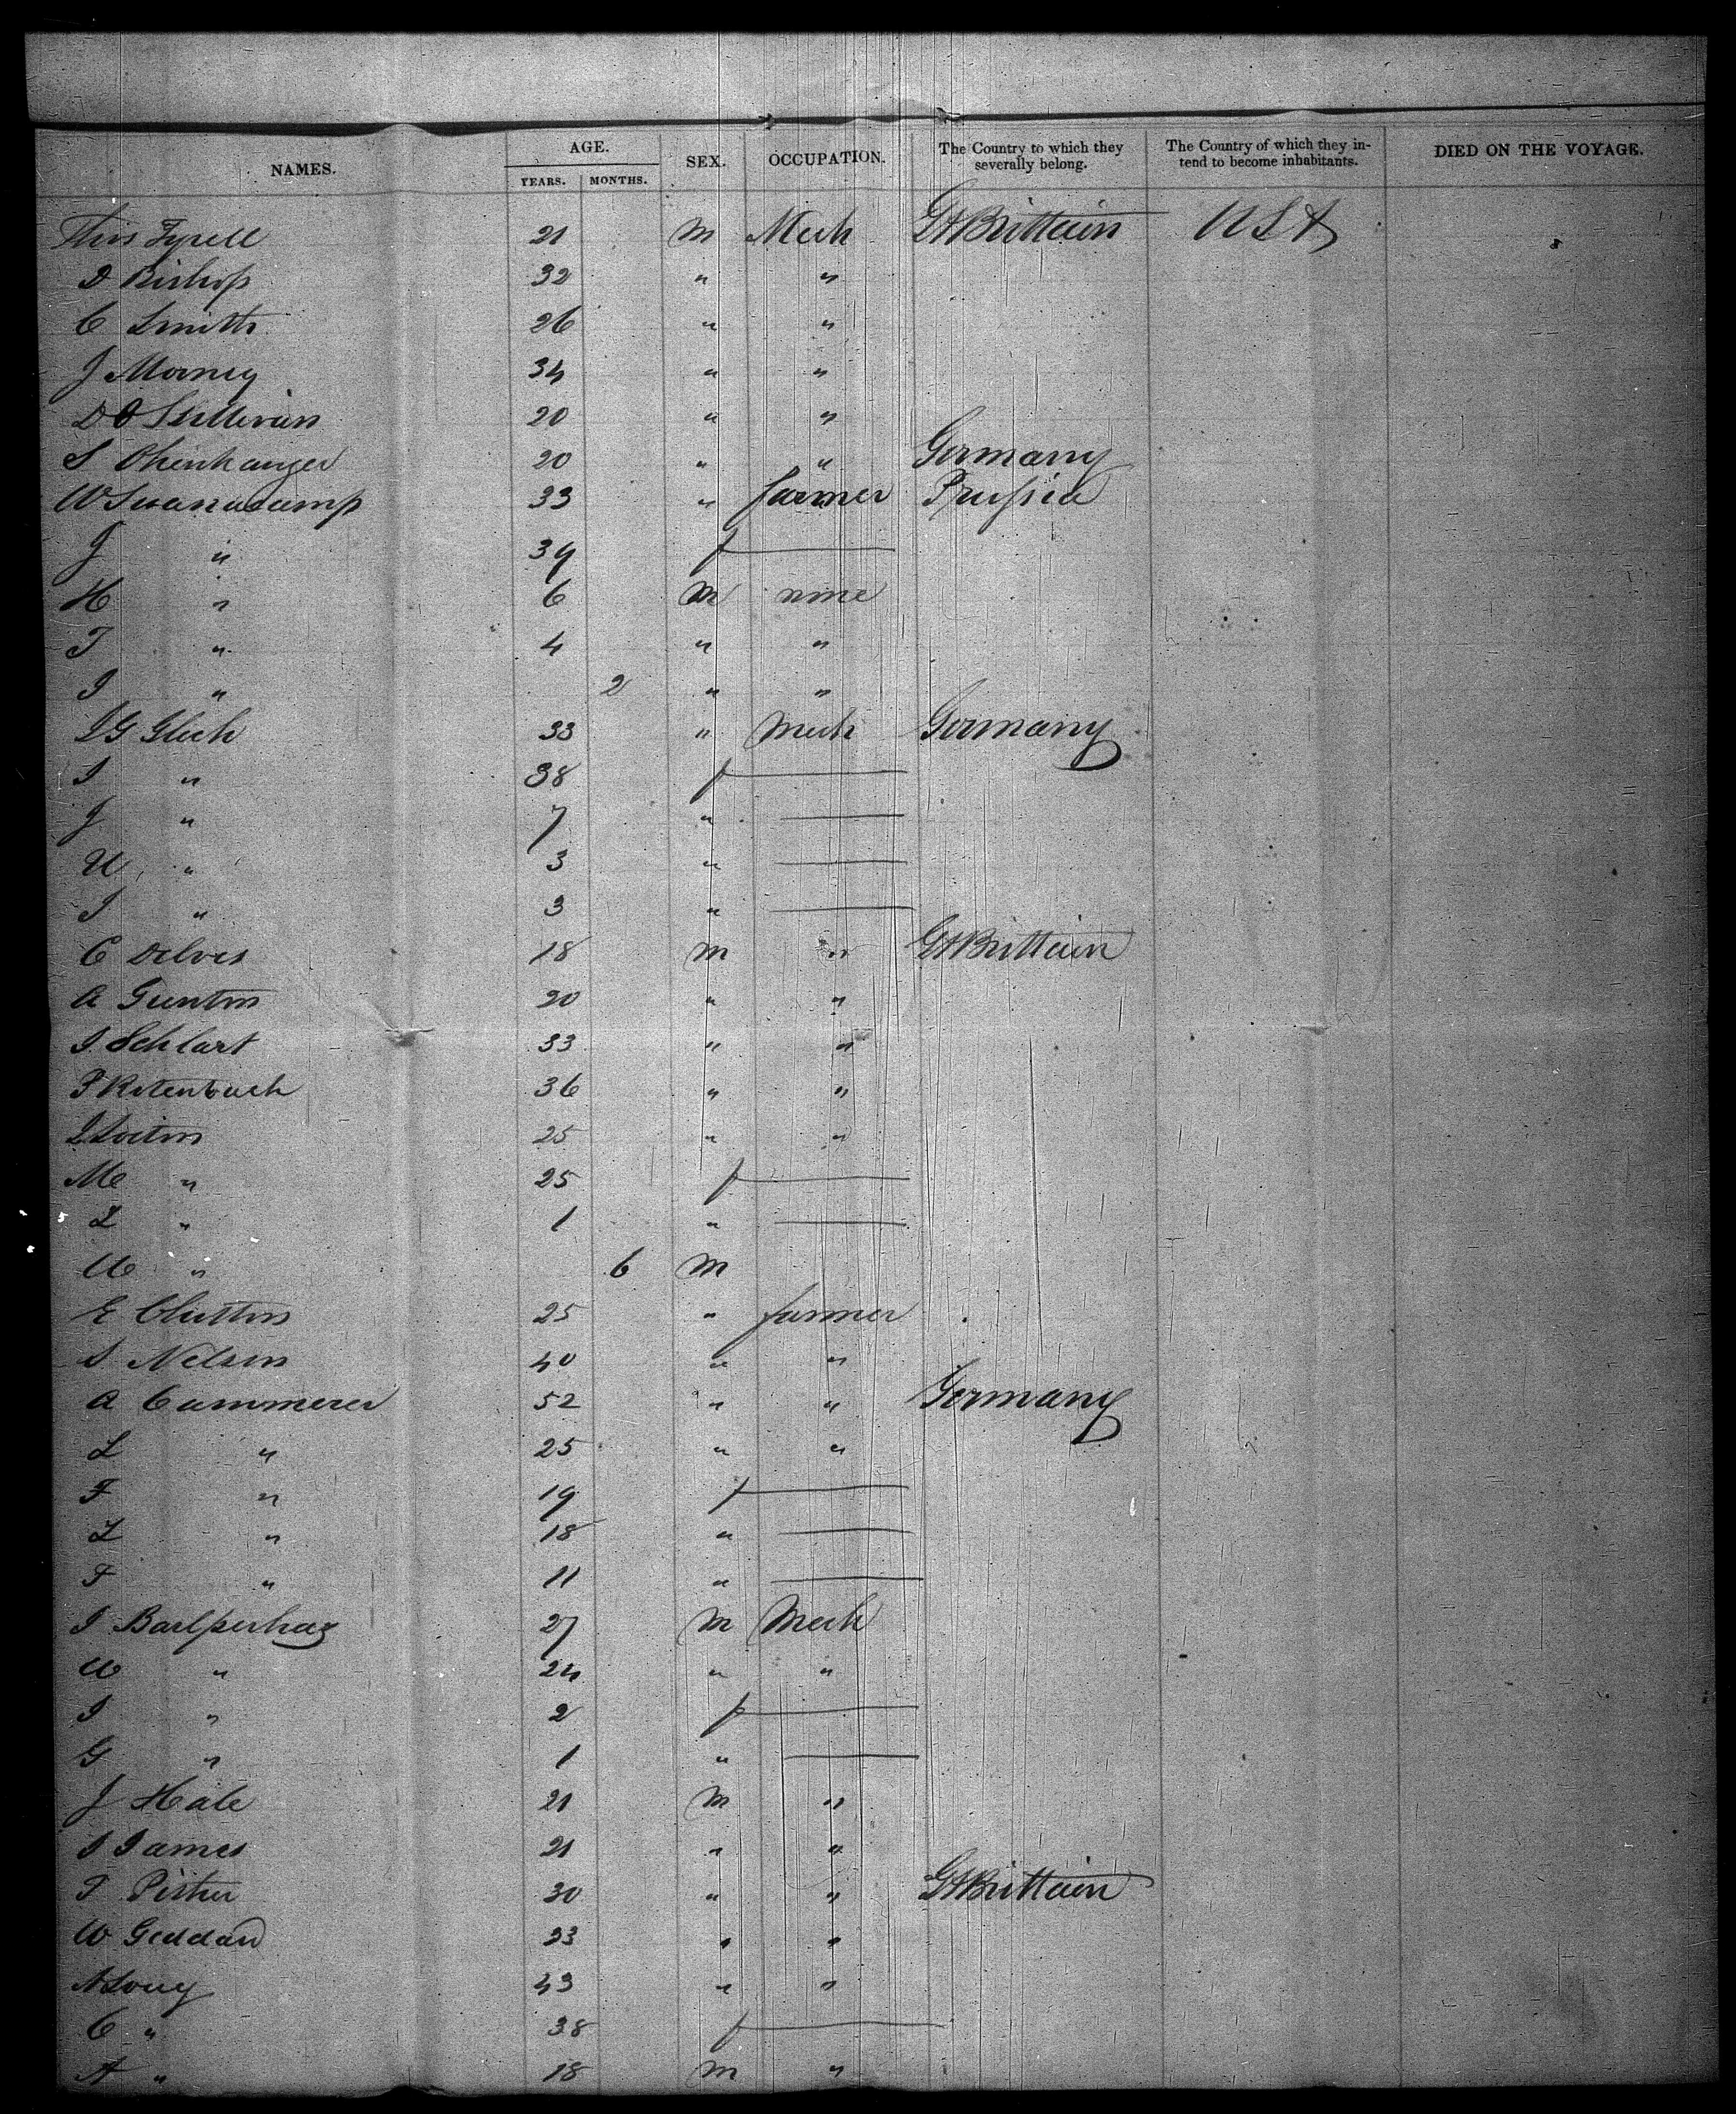 NAMES. AGE. SEX. OCCUPATION. The Country to which they severally belong. The Country of which they in-tend to become inhabitants. DIED ON THE VOYAGE.
YEARS. MONTHS.
Thos Tyrell 21 M Mech Gt Brittain USA
D Bishop 32 " "
C Smith 26 " "
J Morney 34 " "
D O Sullivan 20 " "
S 20 " " Germany
W 33 " farmer Prussia
J " 39 f
H " 6 M none
T " 4 " "
I " 2 " "
Glech 33 " Mech Germany
I " 38 f
J " 7 "
" 3 "
I " 3 "
C Delves 18 M " Gt Brittain
A Gunton 20 " "
I Schlart 33 " "
P Rotenbach 36 " "
25 " "
" 25 f
L " 1 "
" 6 M
E Clutton 25 " farmer
S Nelson 40 " "
A Cammerer 52 " " Germany
L " 25 " "
F " 19 f
L " 18 "
F " 11 "
I 27 M Mech
" 24 " "
I " 2 f
G " 1 "
J Hale 21 M "
I James 21 " "
T 30 " " Gt Brittain
W Geddard 23 " "
A Long 43 " "
C " 38 f
A " 18 M "